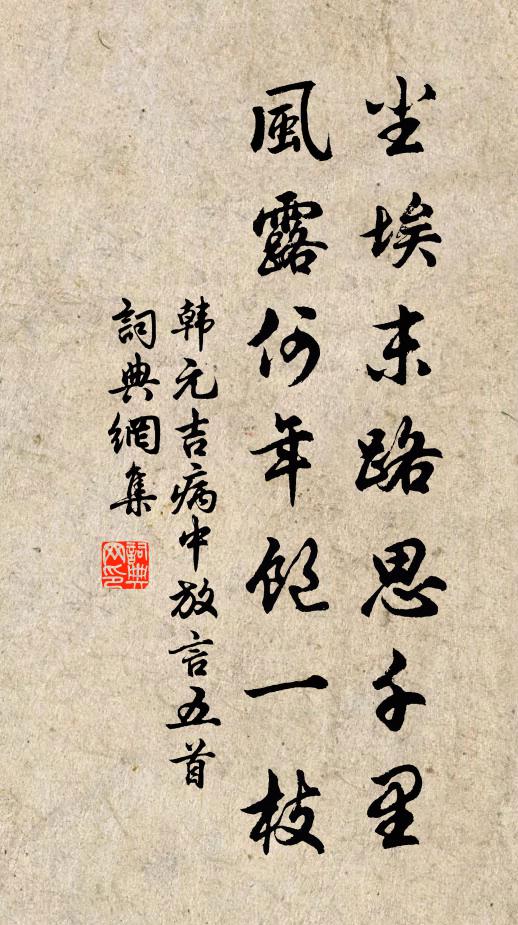 尘埃末路思千里
風露何年飽一枝
韩元吉病中放言五首
詞典網集
詞典
网印